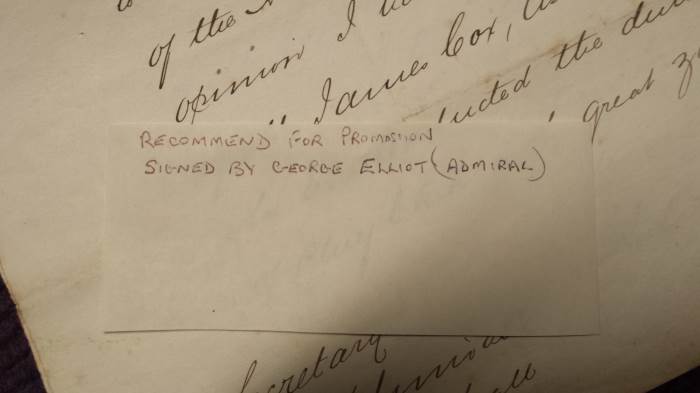 of the
opinion I
"James Cox,
ucted the
great
RECOMMEND FOR PROMOTION
SIGNED BY GEORGE ELLIOT (ADMIRAL)
cretary